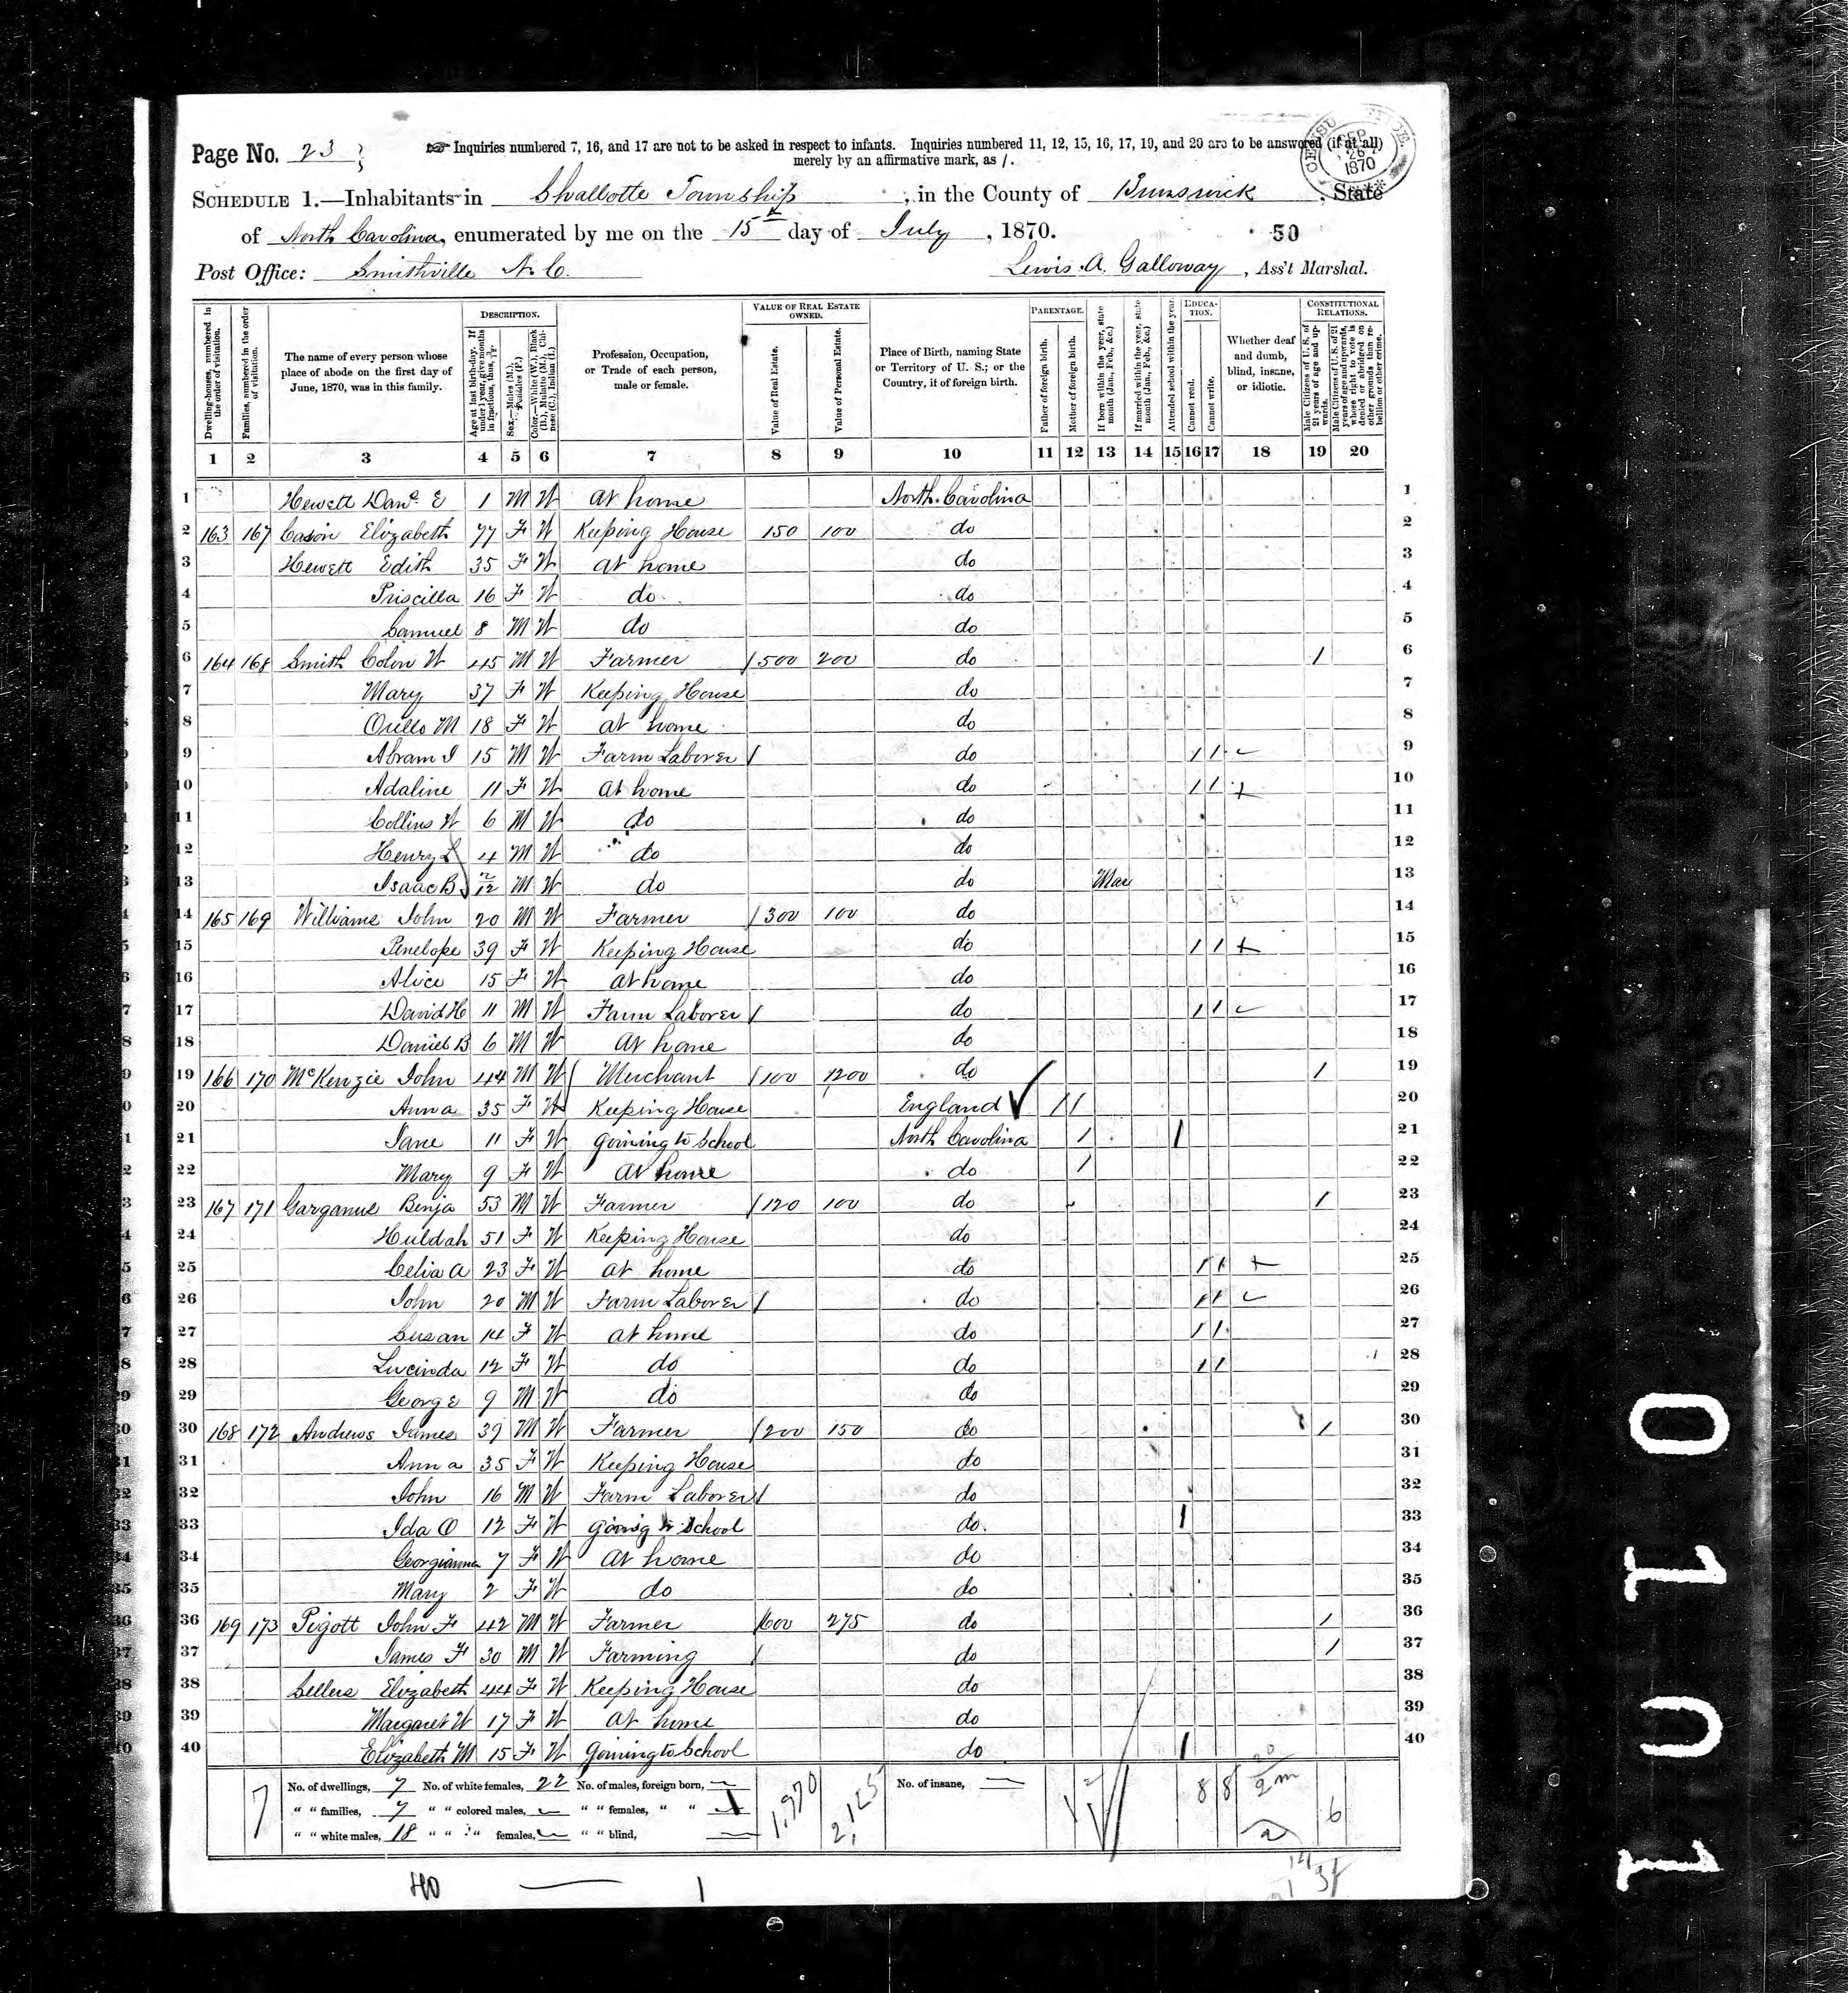 Page No. 23
☞ Inquiries numbered 7, 16, and 17 are not to be asked in respect to infants. Inquiries numbered 11, 12, 15, 16, 17, 19, and 20 are to be answered (if at all)
merely by an affirmative mark, as /.
SEP 26 1870
SCHEDULE 1.—Inhabitants in Shallotte Township, in the County of Brunswick, State
of North Carolina, enumerated by me on the 15th day of July, 1870.
50
Post Office: Smithville N.C.
Lewis A. Galloway, Ass't Marshal.
Dwelling-houses, numbered in the order of visitation.
Families, numbered in the order of visitation.
The name of every person whose place of abode on the first day of June, 1870, was in this family.
DESCRIPTION.
Age at last birth-day. If under 1 year, give months in fractions, thus, 3/12.
Sex.—Males (M.), Females (F.)
Color.—White (W.), Black (B.), Mulatto (M.), Chinese (C.), Indian (I.)
Profession, Occupation, or Trade of each person, male or female.
VALUE OF REAL ESTATE OWNED.
Value of Real Estate.
Value of Personal Estate.
Place of Birth, naming State or Territory of U. S.; or the Country, if of foreign birth.
PARENTAGE.
Father of foreign birth.
Mother of foreign birth.
If born within the year, state month (Jan., Feb., &c.)
If married within the year, state month (Jan., Feb., &c.)
Attended school within the year.
EDUCATION.
Cannot read.
Cannot write.
Whether deaf and dumb, blind, insane, or idiotic.
CONSTITUTIONAL RELATIONS.
Male Citizens of U. S. of 21 years of age and upwards.
Male Citizens of U. S. of 21 years of age and upwards, whose right to vote is denied or abridged on other grounds than rebellion or other crime.
1 2 3 4 5 6 7 8 9 10 11 12 13 14 15 16 17 18 19 20
1 Hewett Danl E 1 M W at home North Carolina 1
2 163 167 Cason Elizabeth 77 F W Keeping House 150 100 do 2
3 Hewett Edith 35 F W at home do 3
4 Priscilla 16 F W do do 4
5 Samuel 8 M W do do 5
6 164 168 Smith Colon W 45 M W Farmer 500 200 do / 6
7 Mary 37 F W Keeping House do 7
8 M 18 F W at home do 8
9 Abram I 15 M W Farm Laborer do / / 9
10 Adaline 11 F W at home do / / 10
11 Collins W 6 M W do do 11
12 Henry L 4 M W do do 12
13 Isaac B 2/12 M W do do Mar 13
14 165 169 Williams John 20 M W Farmer 300 100 do 14
15 Penelope 39 F W Keeping House do / / 15
16 Alice 15 F W at home do 16
17 David H 11 M W Farm Laborer do / / 17
18 Daniel B 6 M W at home do 18
19 166 170 McKenzie John 44 M W Merchant 100 1200 do / 19
20 Anna 35 F W Keeping House England / / 20
21 Jane 11 F W Goining to School North Carolina / / 21
22 Mary 9 F W at home do / 22
23 167 171 Garganus Benja 53 M W Farmer 120 100 do / 23
24 Huldah 51 F W Keeping House do 24
25 Celia A 23 F W at home do / / 25
26 John 20 M W Farm Laborer do / / 26
27 Susan 14 F W at home do / / 27
28 Lucinda 12 F W do do / / 28
29 George 9 M W do do 29
30 168 172 Andrews James 39 M W Farmer 200 150 do / 30
31 Anna 35 F W Keeping House do 31
32 John 16 M W Farm Laborer do 32
33 Ida O 12 F W Going to School do / 33
34 Georgianna 7 F W at home do 34
35 Mary 2 F W do do 35
36 169 173 Pigott John F 42 M W Farmer 600 275 do / 36
37 James F 30 M W Farming do / 37
38 Sellers Elizabeth 44 F W Keeping House do 38
39 Margaret W 17 F W at home do 39
40 Elizabeth M 15 F W Goining to School do / 40
No. of dwellings, 7 No. of white females, 22 No. of males, foreign born, — No. of insane, —
" " families, 7 " " colored males, — " " females, " " 1
" " white males, 18 " " " females, — " " blind, —
7 1,970 2,125 1 2 8 8 6
40 — 1
0101